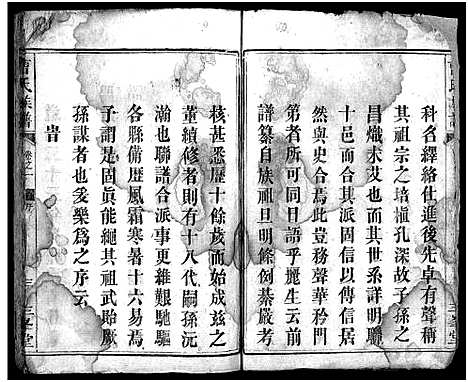 科名繹絡仕進後先卓有聲稱
其祖宗之培植孔深故子孫之
昌熾未艾也而其世系詳明聯
屬而合其派固信以傳信居
然與史合焉此豈務聲華矜門
第者所可同日語乎麗生云前
譜纂自族祖旦明條例綦嚴考
核甚悉歷十餘歲而始成茲之
董續修者則有十八代嗣孫沅
瀚也聯譜合派事更難艱馳驅
各縣備歷風霜寒暑十六易焉
予謂是固眞能繩其祖武貽厥
孫謀者也爰樂爲之序云
旹
曹氏族譜
卷之一
序
三